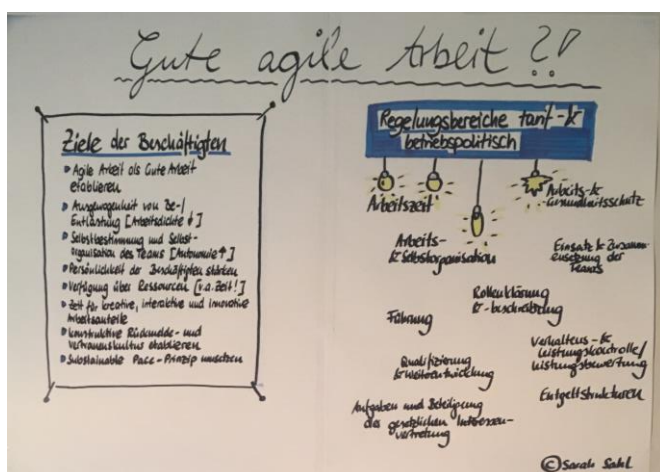 Gute agile Arbeit?!
Ziele der Beschäftigten
Agile Arbeit als Gute Arbeit
etablieren
Ausgewogenheit von Be-/
Entlastung [Arbeitsdichte ↓]
Selbstbestimmung und Selbst-
organisation des Teams [Autonomie ↑]
Persönlichkeit der Beschäftigten stärken
Verfügung über Ressourcen [v.a. Zeit!]
Zeit für kreative, interaktive und innovative
Arbeitsanteile
konstruktive Rückmelde- und
Vertrauenskultur etablieren
Sustainable Pace-Prinzip umsetzen
Regelungsbereiche tarif- &
betriebspolitisch
Arbeitszeit
Arbeits- &
Gesundheitsschutz
Arbeits-
& Selbstorganisation
Einsatz & Zusamm-
ensetzung der
Teams
Rollenklärung
& -beschreibung
Führung
Verhaltens- &
Leistungskontrolle/
Leistungsbewertung
Qualifizierung
& Weiterentwicklung
Entgeltstrukturen
Aufgaben und Beteiligung
der gesetzlichen Interessen-
vertretung
© Sarah